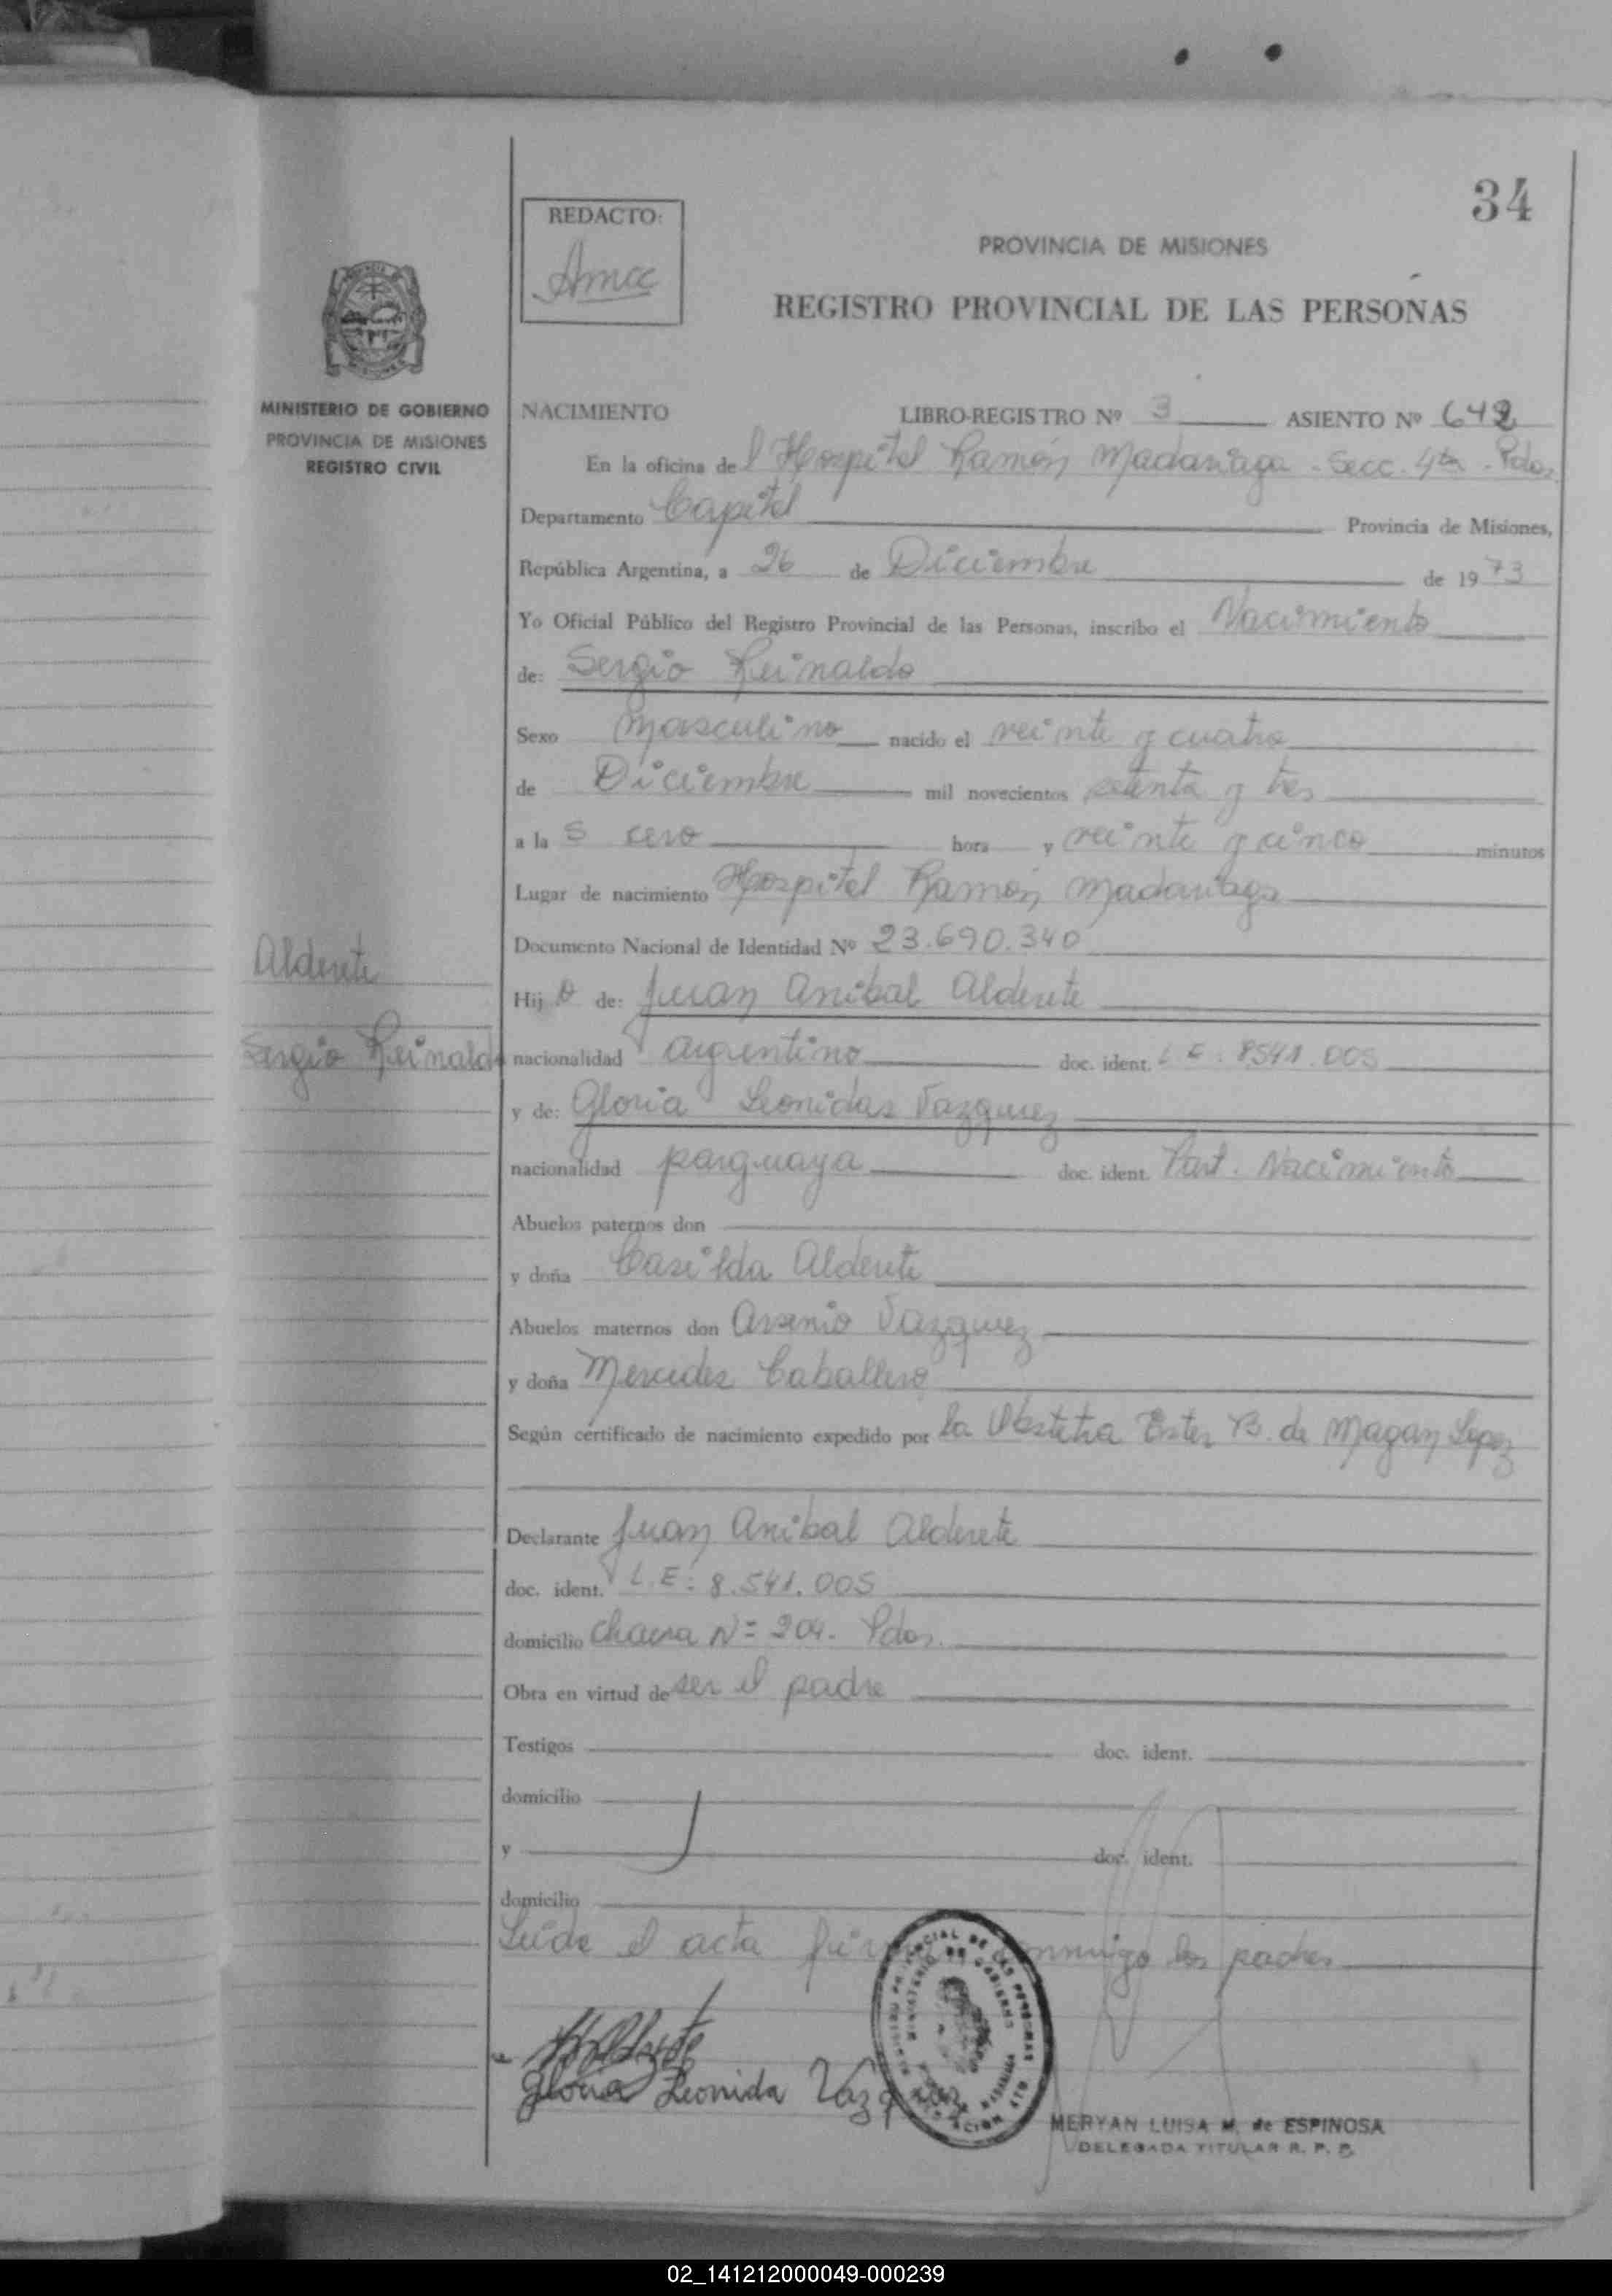 34
REDACTO:
Amcc
PROVINCIA DE MISIONES
REGISTRO PROVINCIAL DE LAS PERSONAS
MINISTERIO DE GOBIERNO
PROVINCIA DE MISIONES
REGISTRO CIVIL
NACIMIENTO LIBRO-REGISTRO Nº 3 ASIENTO Nº 642
En la oficina del Hospital Ramón Madariaga - Secc. 4ta - Pdas.
Departamento Capital Provincia de Misiones,
República Argentina, a 26 de Diciembre de 1973
Yo Oficial Público del Registro Provincial de las Personas, inscribo el Nacimiento
de: Sergio Reinaldo
Sexo Masculino nacido el veinte y cuatro
de Diciembre mil novecientos setenta y tres
a las cero hora y veinte y cinco minutos
Lugar de nacimiento Hospital Ramón Madariaga
Documento Nacional de Identidad Nº 23.690.340
Alderete
Hijo de: Juan Anibal Alderete
Sergio Reinaldo
nacionalidad argentino doc. ident. L E : 8541.005
y de: Gloria Leonidas Vazquez
nacionalidad parguaya doc. ident. Part. Nacimiento
Abuelos paternos don
y doña Casilda Alderete
Abuelos maternos don Arsenio Vazquez
y doña Mercedes Caballero
Según certificado de nacimiento expedido por la Obstetra Ester B. de Magan Lopez
Declarante Juan Anibal Alderete
doc. ident. L.E: 8.541.005
domicilio Chacra Nº 204. Pdas.
Obra en virtud de ser el padre
Testigos doc. ident.
domicilio
y doc. ident.
domicilio
Leida el acta conmigo los padres
Gloria Leonida Vazquez
MERYAN LUISA M. de ESPINOSA
DELEGADA TITULAR R. P. P.
02_141212000049-000239